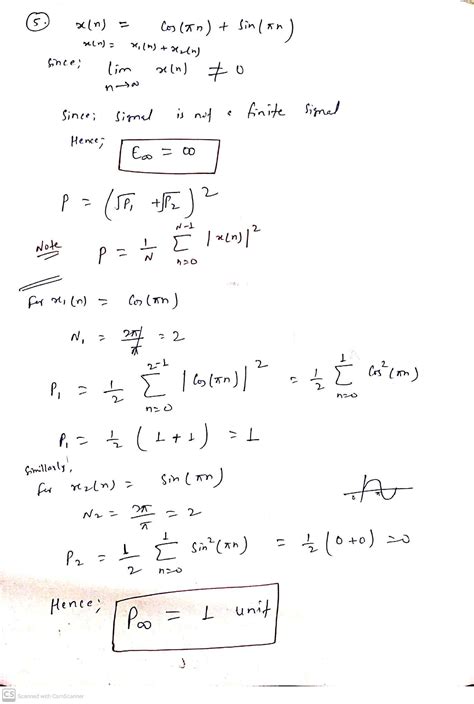 5. x(n) = Cos(πn) + Sin(πn)
x(n) = x₁(n) + x₂(n)
Since; lim n→∞ x(n) ≠ 0
Since; Signal is not a finite Signal
Hence; E∞ = ∞
P = (√P₁ + √P₂)²
Note P = 1/N Σ_{n=0}^{N-1} |x(n)|²
For x₁(n) = Cos(πn)
N₁ = 2π/π = 2
P₁ = 1/2 Σ_{n=0}^{2-1} |Cos(πn)|² = 1/2 Σ_{n=0}^{1} Cos²(πn)
P₁ = 1/2 (1+1) = 1
Similarly,
for x₂(n) = Sin(πn)
N₂ = 2π/π = 2
P₂ = 1/2 Σ_{n=0}^{1} Sin²(πn) = 1/2 (0+0) = 0
Hence; P∞ = 1 unit
CS Scanned with CamScanner